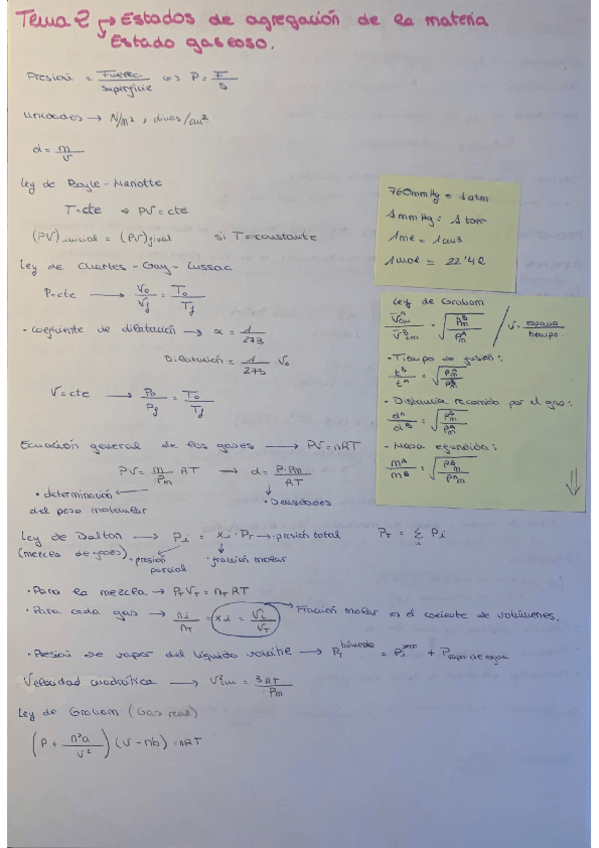 Tema 2 → Estados de agregación de la materia
↳ Estado gaseoso.
Presión = Fuerza / superficie ⇔ P = F / S
unidades → N/m², dinas/cm²
d = m / v
Ley de Boyle-Mariotte
T=cte ⇒ PV = cte
(PV)inicial = (PV)final si T=constante
Ley de Charles-Gay-Lussac
P=cte → V₀ / Vf = T₀ / Tf
• coeficiente de dilatación → α = 1 / 273
Dilatación = 1 / 273 V₀
V=cte → P₀ / Pf = T₀ / Tf
Ecuación general de los gases → PV=nRT
PV = m / Pm RT → d = P·Pm / RT
• determinación del peso molecular
• Densidades
Ley de Dalton → Pi = xi · PT → presión total PT = Σi Pi
(mezcla de gases) • presión parcial • fracción molar
• Para la mezcla → PT VT = nT RT
• Para cada gas → ni / nT = xi = Vi / VT → Fracción molar es el cociente de volúmenes.
• Presión de vapor del líquido volátil → PT húmedo = Pi seco + P vapor de agua
Velocidad cuadrática → v²cm = 3RT / Pm
Ley de Graham (Gas real)
(P + n²a / v²) (v - nb) = nRT
760mmHg = 1atm
1mmHg = 1 torr
1ml = 1cm3
1mol = 22'4l
Ley de Graham
v̄ᴬcm / v̄ᴮcm = √(PᴮM / PᴬM) / v = espacio / tiempo
- Tiempo de gases:
tᴮ / tᴬ = √(Pᴮm / Pᴬm)
- Distancia recorrida por el gas:
dᴬ / dᴮ = √(Pᴮm / Pᴬm)
- Masa efundida:
mᴬ / mᴮ = √(Pᴮm / Pᴬm)